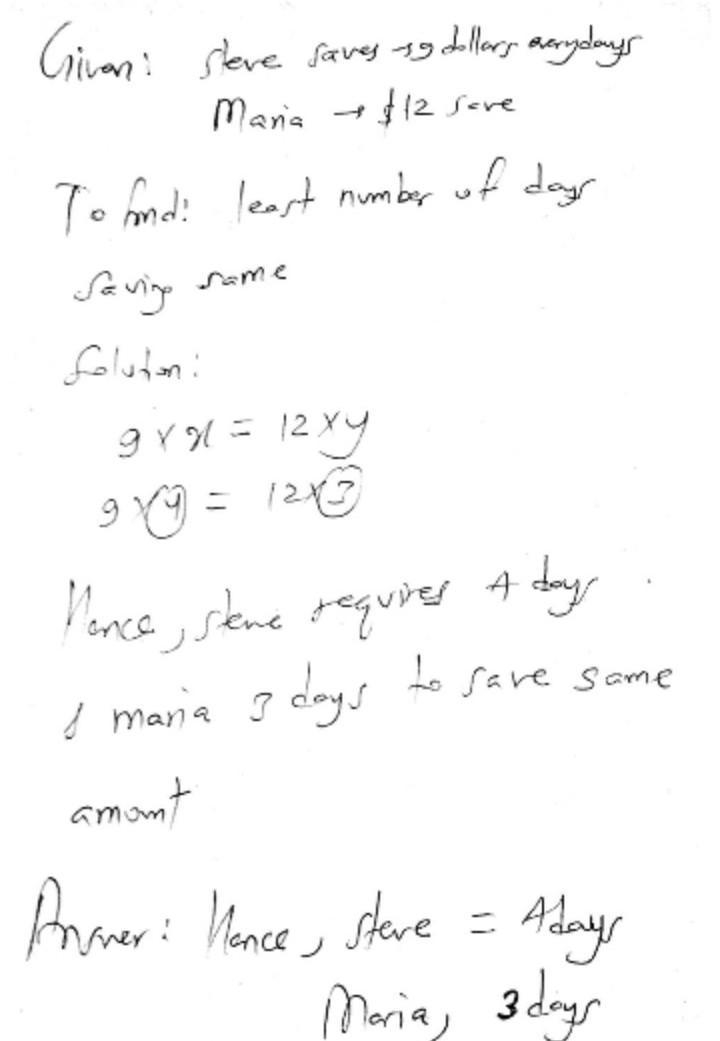 Given: Steve saves → 9 dollars everydays
Maria → $12 save
To find: least number of days
saving same
Soluton:
9 × x = 12 × y
9 × 4 = 12 × 3
Hence, steve requires 4 days
& maria 3 days to save same
amount
Answer: Hence, steve = 4 days
Maria, 3 days